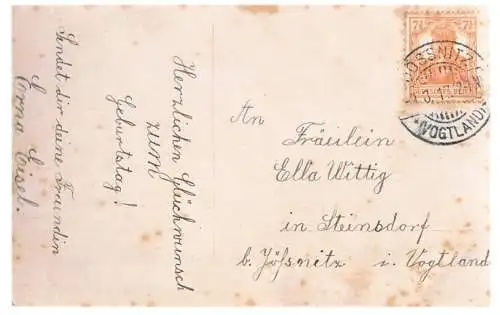 Herzlichen Glückwunsch
zum
Geburtstag!
Sendet dir deine Freundin
Erna Eisel.
An
Fräulein
Ella Wittig
in Steinsdorf
b. Jößnitz i. Vogtland
7½ 7½
DEUTSCHES REICH
JÖSSNITZ
(VOGTLAND)